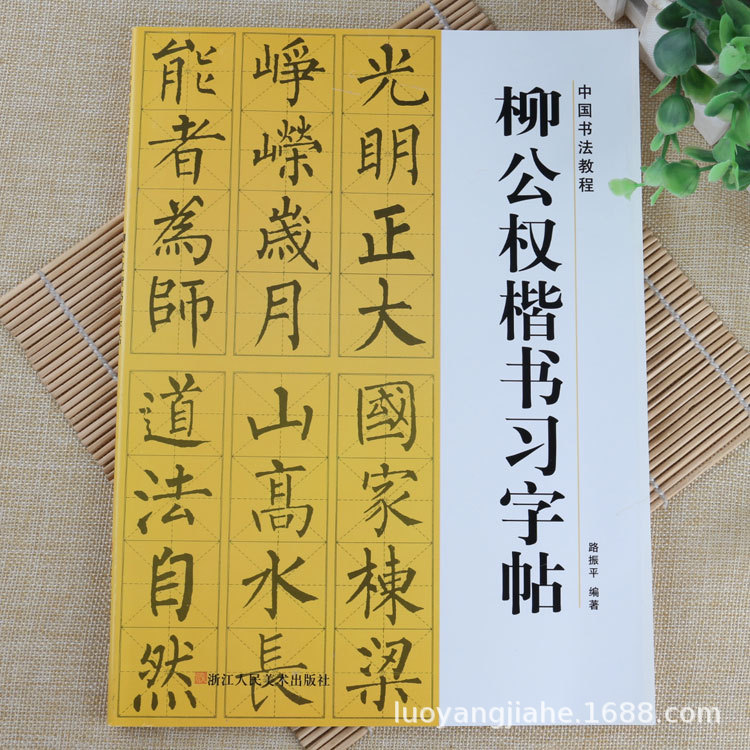 中国书法教程
柳公权楷书习字帖
路振平 编著
光明正大
峥嵘歲月
能者為師
國家棟梁
山高水長
道法自然
浙江人民美术出版社
luoyangjiahe.1688.com